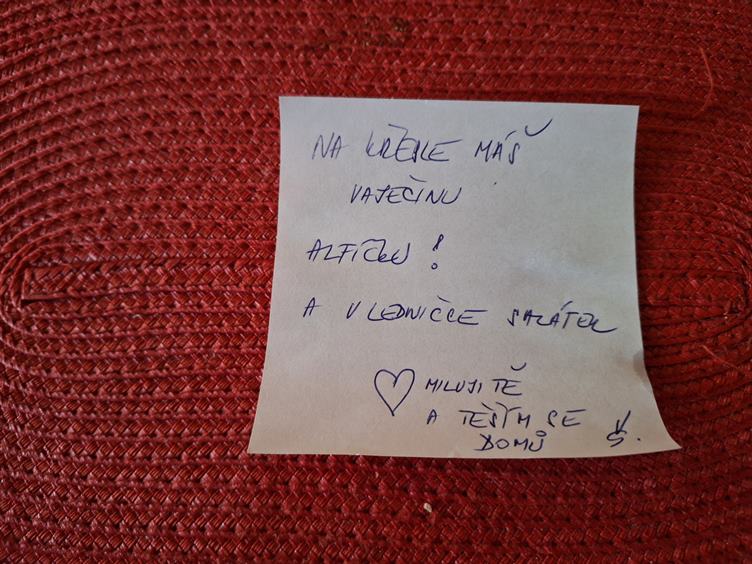 NA KŘESLE MÁŠ
VAJEČINU
ALFÍČKU!
A V LEDNIČCE SALÁTEK
MILUJI TĚ
A TĚŠÍM SE
DOMŮ Š.